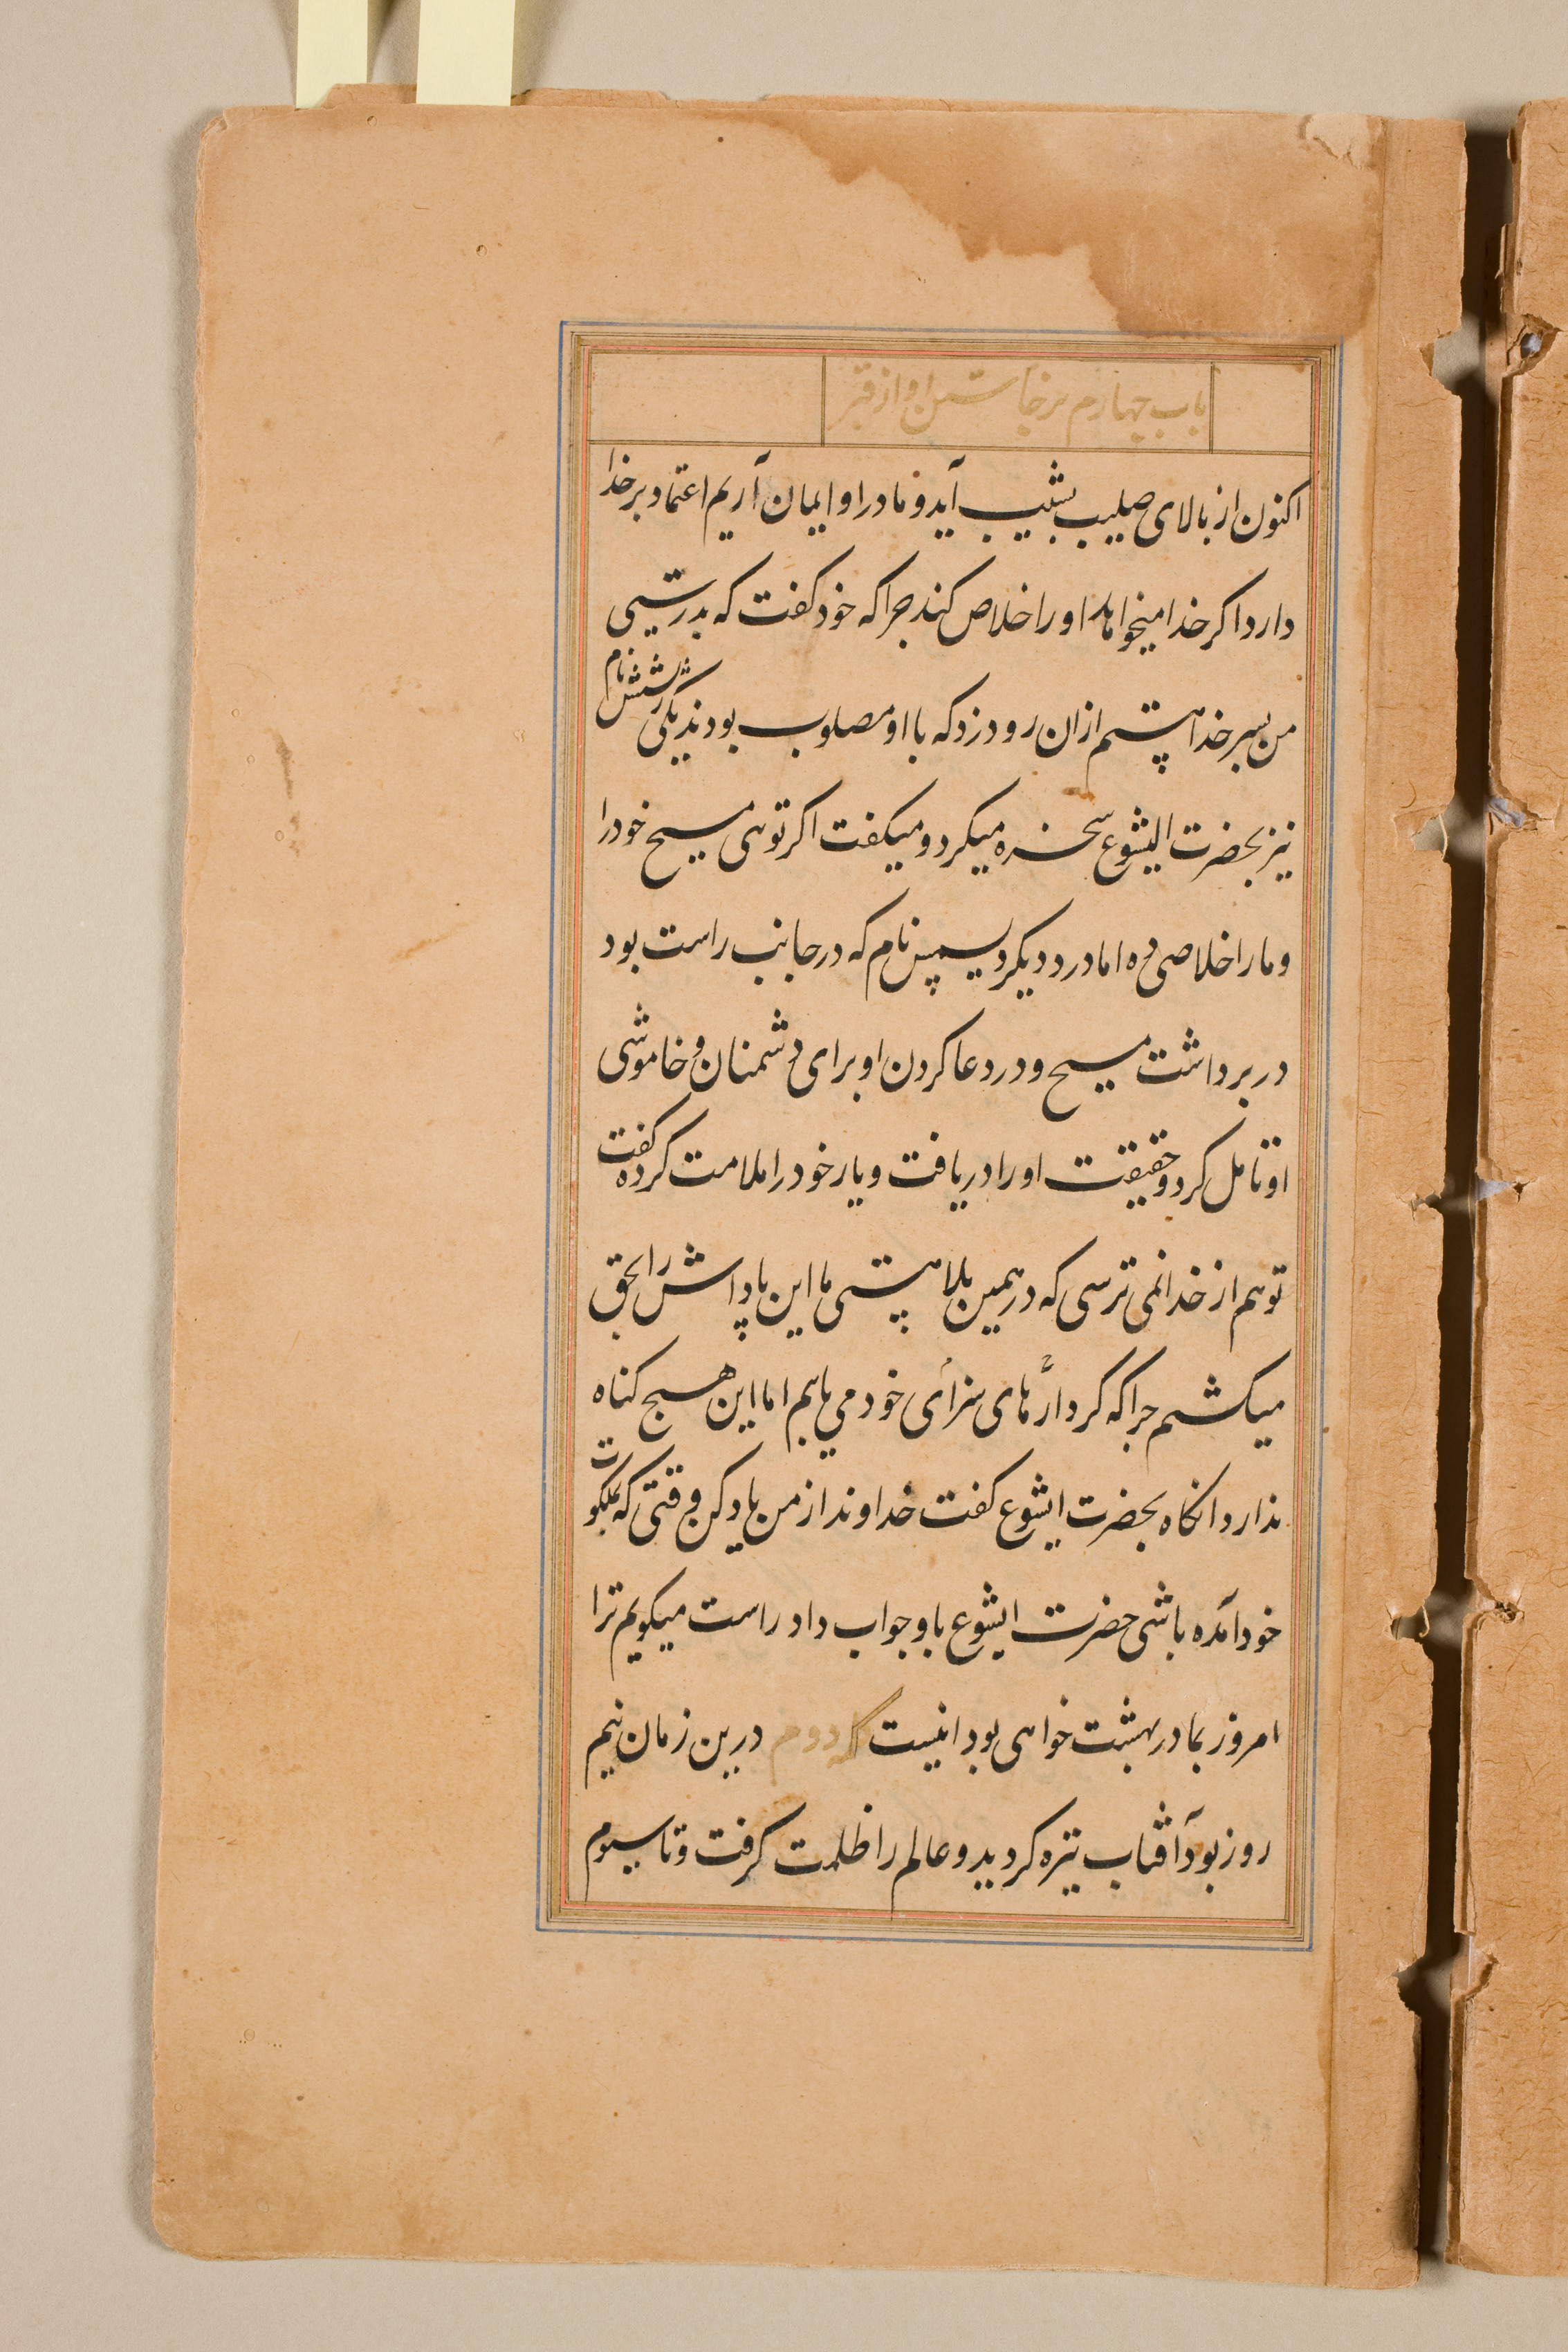 باب چهارم برخاستن او از قبر
اکنون از بالای صلیب بشیب آید و ما در او ایمان آریم اعتماد بر خدا
دارد اکر خدا میخواهد او را خلاص کند چرا که خود کفت که بدرستی
من پسر خدا هستم ازان رو دزد که با او مصلوب بودند یکی ژشتش نام
نیز بحضرت ایشوع سخره میکرد و میکفت اکر توهی مسیح خود را
و ما را خلاصی ده اما درد دیکر دیسپس نام که در جانب راست بود
در برداشت مسیح و در دعا کردن او برای دشمنان و خاموشی
او تامل کرد و حقیقت او را دریافت و یار خود را ملامت کرده کفت
تو هم از خدا نمی ترسی که در همین بلا هستی ما این پاداش را بحق
میکشیم چرا که کردارهای سزای خود می یابیم اما این هیچ کناه
ندارد انکاه بحضرت ایشوع کفت خداوند از من یاد کن وقتی که بملکوت
خود آمده باشی حضرت ایشوع باو جواب داد راست میکویم ترا
امروز بما در بهشت خواهی بود اینست کله دوم درین زمان نیم
روز بود آفتاب تیره کردید و عالم را ظلمت کرفت و تا سیوم